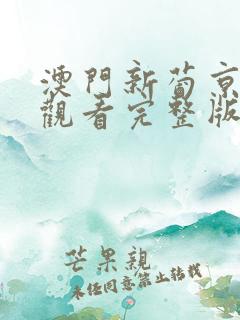 澳門新葡京
觀看完整版
芒果親
未任同意禁止轉載